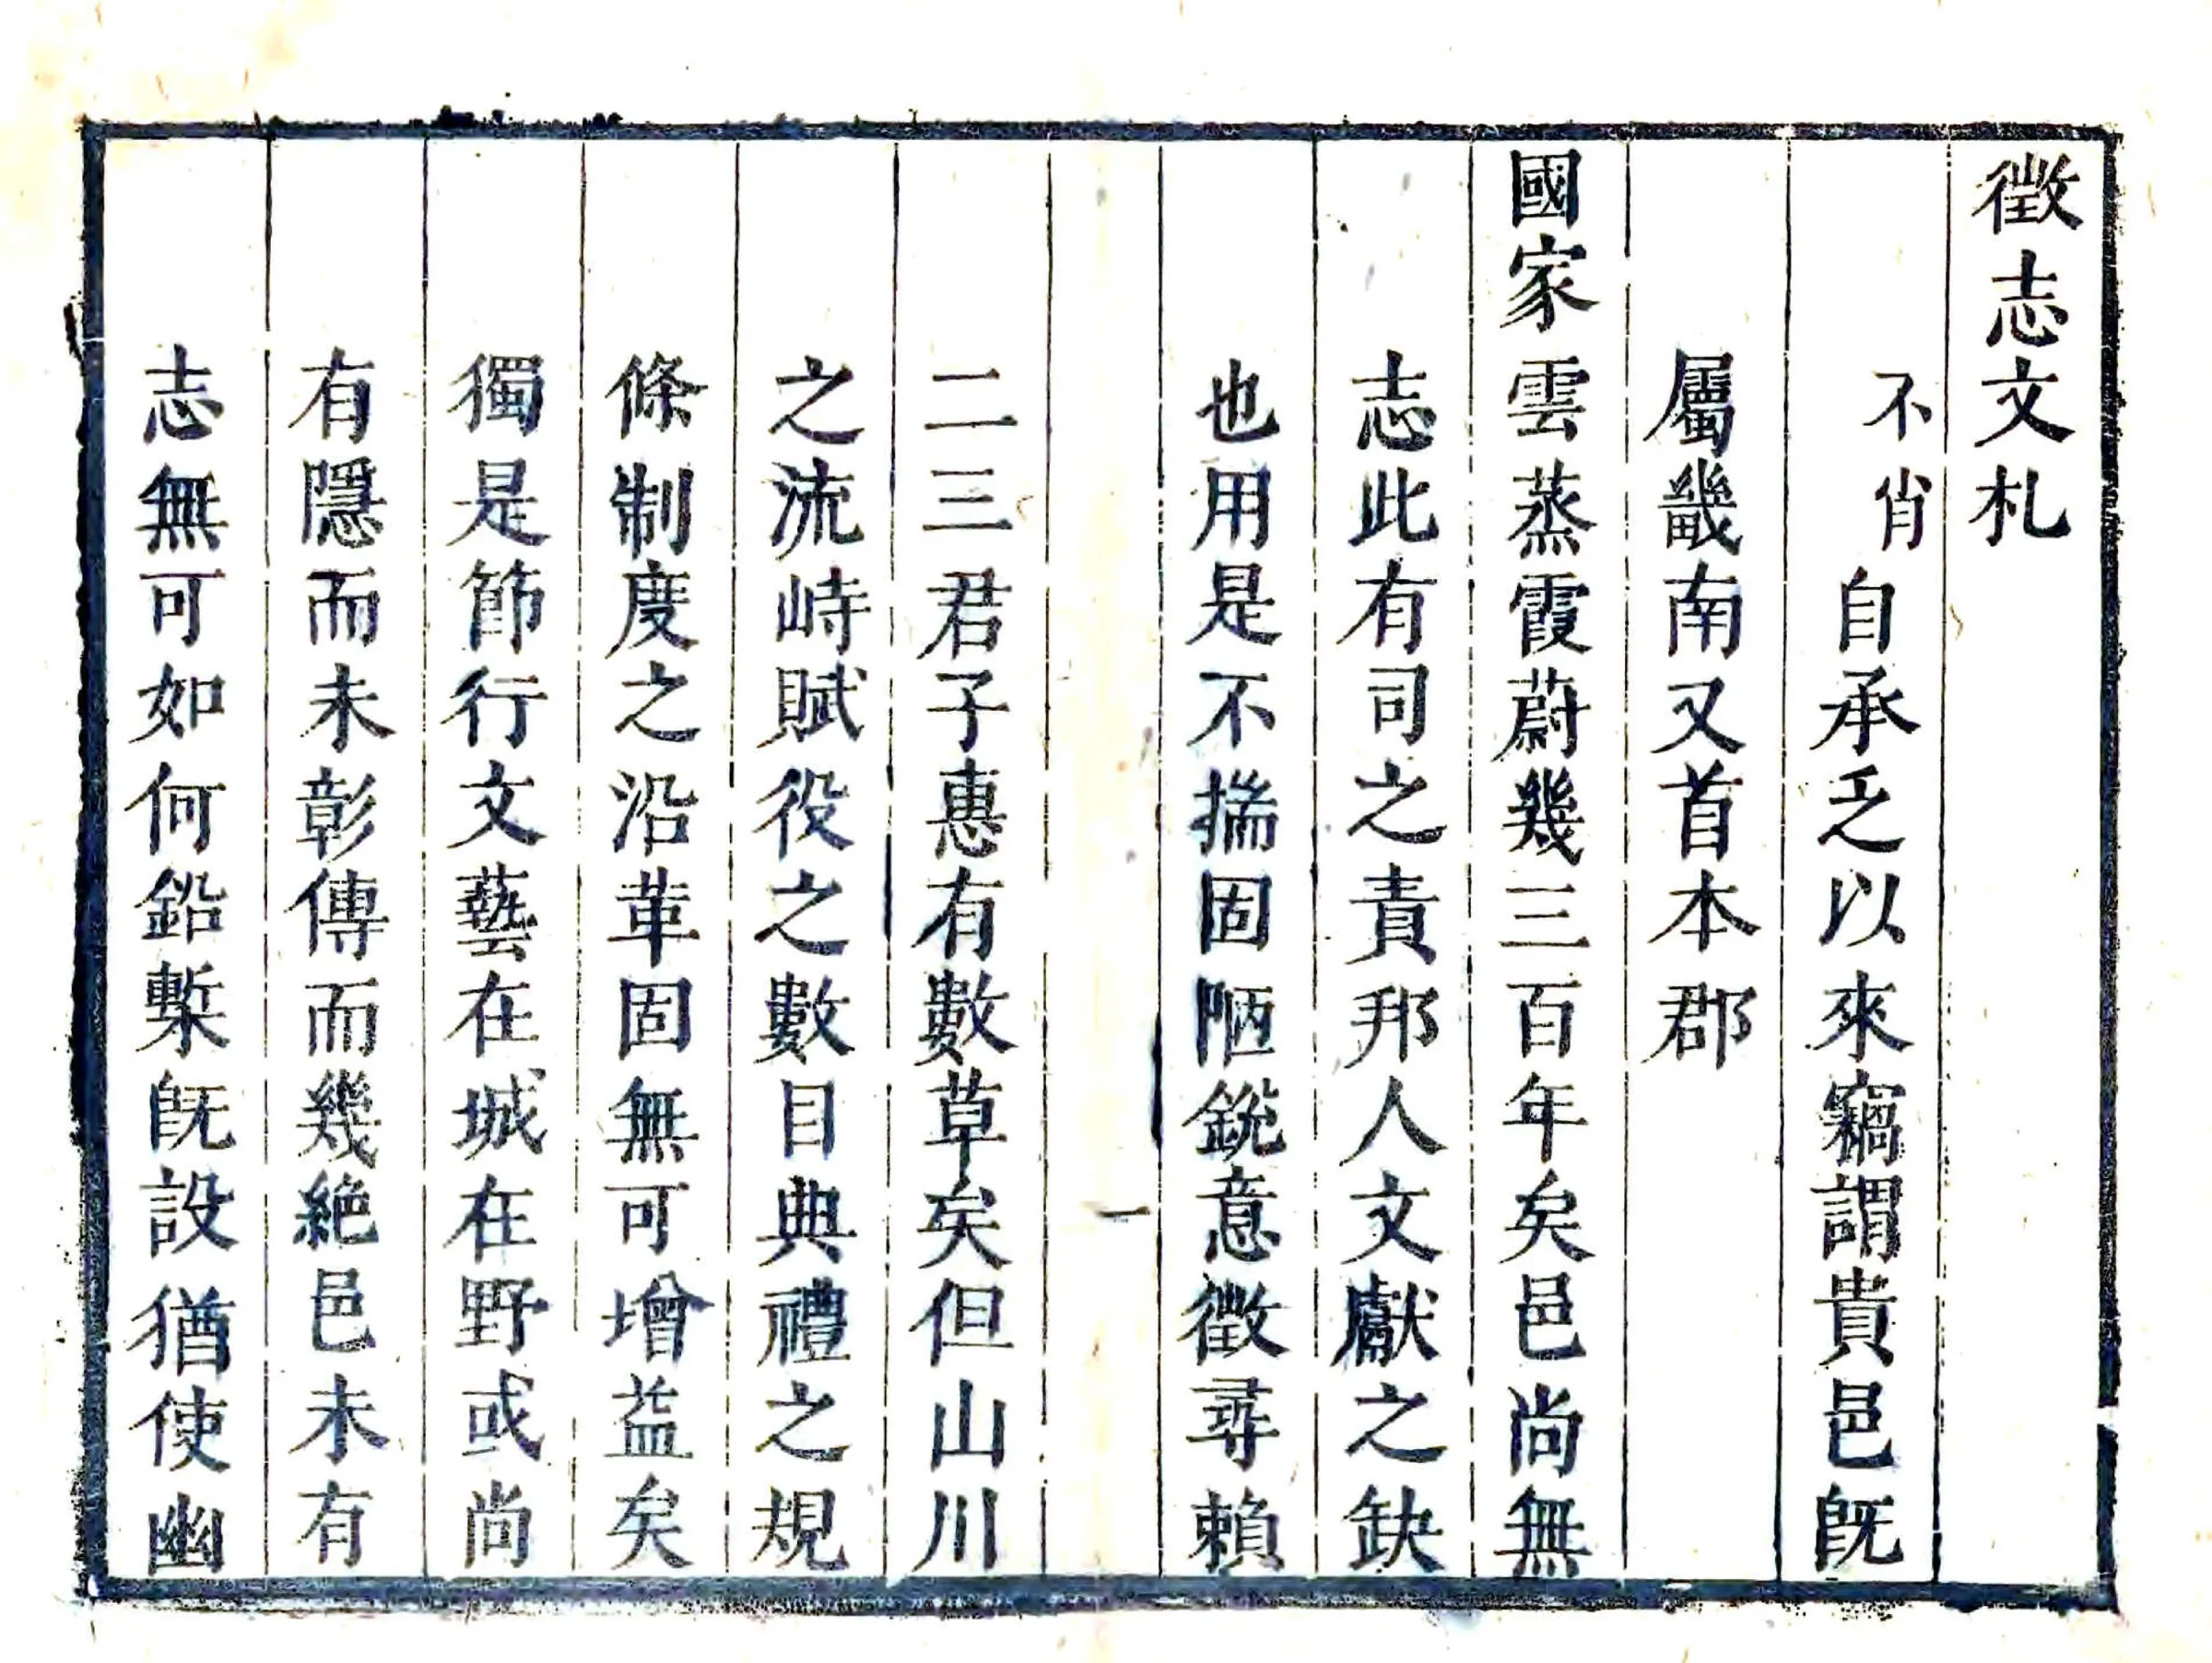 徵志文札
不肖自承乏以來竊謂貴邑旣
屬畿南又首本郡
國家雲蒸霞蔚幾三百年矣邑尚無
志此有司之責邦人文獻之缺
也用是不揣固陋銳意徵尋賴
一
二三君子惠有數草矣但山川
之流峙賦役之數目典禮之規
條制度之沿革固無可增益矣
獨是節行文藝在城在野或尚
有隱而未彰傳而幾絶邑未有
志無可如何鉛槧旣設猶使幽